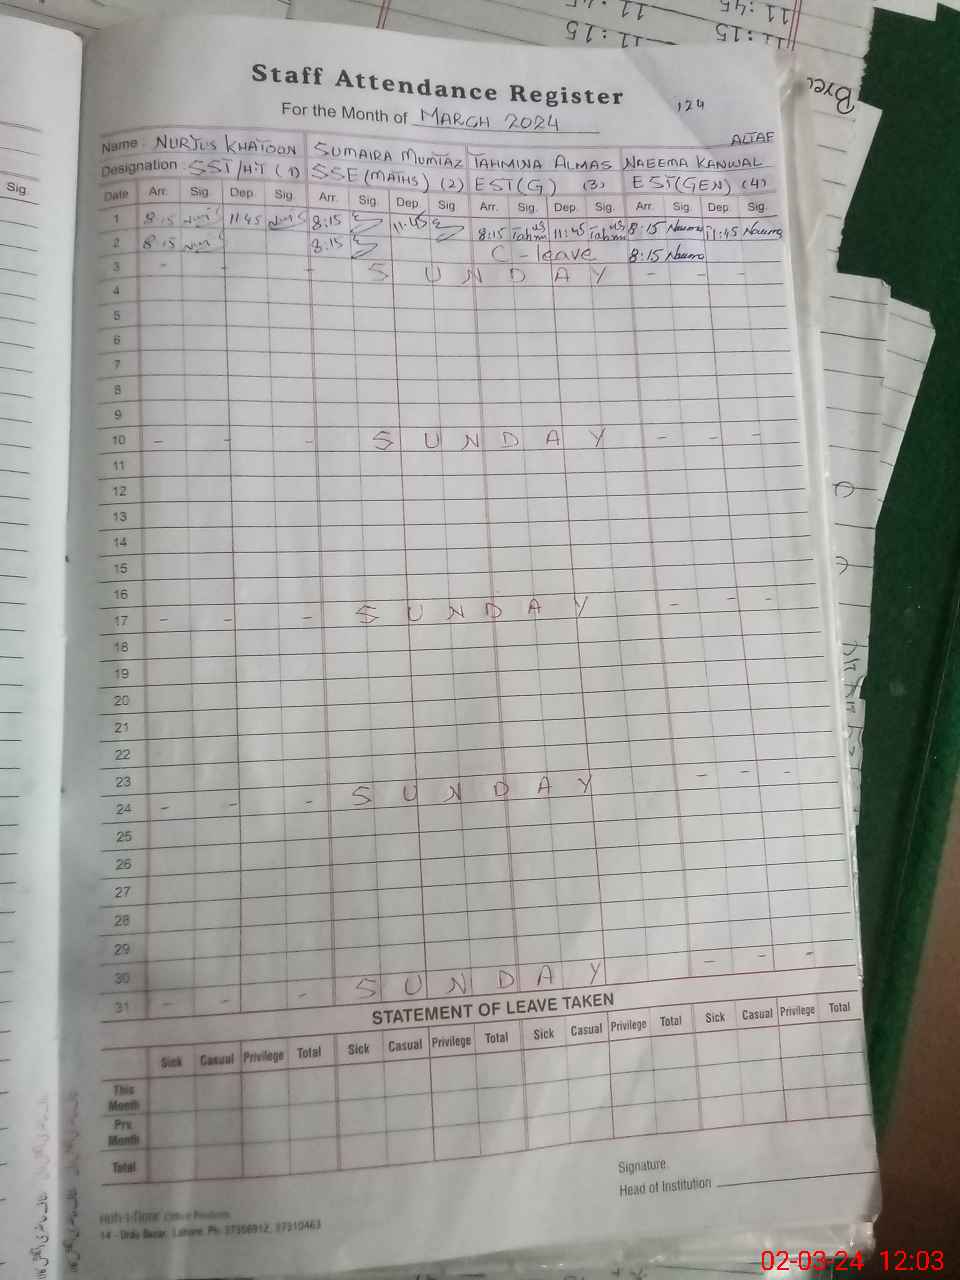 11:45
11:45
11:15
11:15
11:15
Staff Attendance Register
For the Month of MARCH 2024
124
ALTAF
Name : NURJUS KHATOON SUMAIRA MUMTAZ TAHMINA ALMAS NAEEMA KANWAL
Designation : SST/HT (1) SSE(MATHS) (2) EST(G) (3) EST(GEN) (4)
Sig.
Date Arr. Sig. Dep. Sig. Arr. Sig. Dep. Sig. Arr. Sig. Dep. Sig. Arr. Sig. Dep. Sig.
1 8:15 11:45 8:15 11:45 8:15 11:45 8:15 11:45
2 8:15 8:15 C-leave 8:15
3 - - - S U N D A Y - - -
4
5
6
7
8
9
10 - - - S U N D A Y - - -
11
12
13
14
15
16
17 - - - S U N D A Y - - -
18
19
20
21
22
23
24 - - - S U N D A Y - - -
25
26
27
28
29
30
31 - - - S U N D A Y - - -
STATEMENT OF LEAVE TAKEN
Sick Casual Privilege Total Sick Casual Privilege Total Sick Casual Privilege Total Sick Casual Privilege Total
This Month
Prv. Month
Total
Signature.
Head of Institution
14 - Urdu Bazar, Lahore. Ph: 37356912, 37310463
02-03-24 12:03